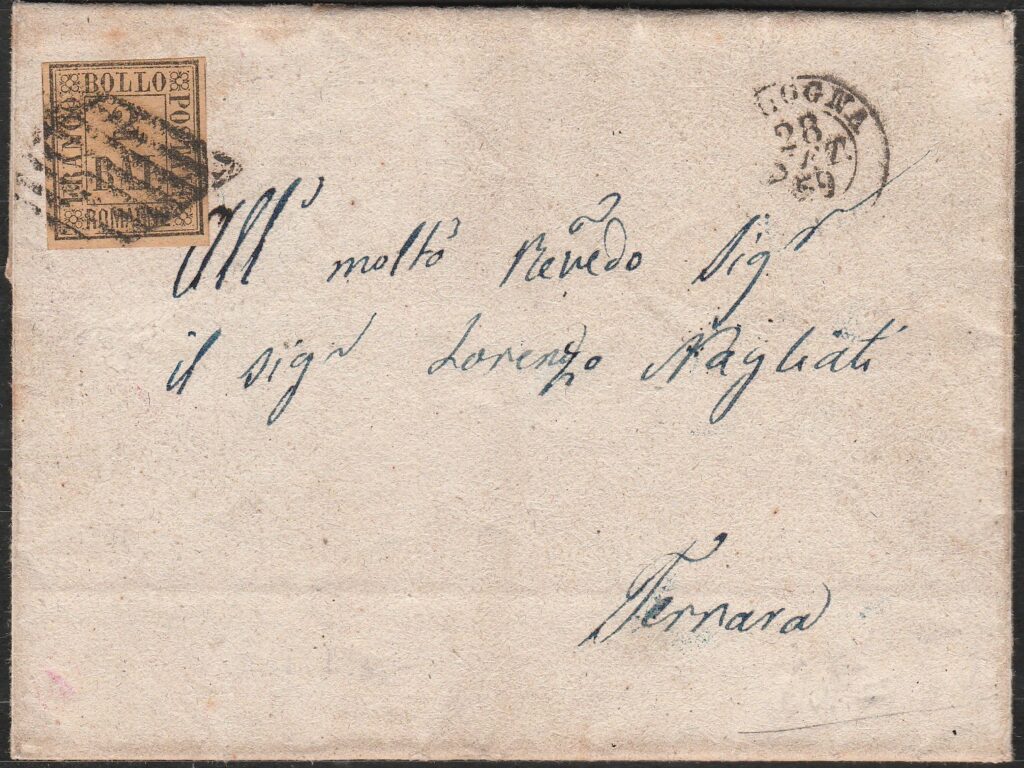 FRANCO
BOLLO
POS
2
BAI
ROMAGNE
LOGNA
28
59
All' molto Revedo Sigr
il sigr Lorenzo Nagliati
Ferrara